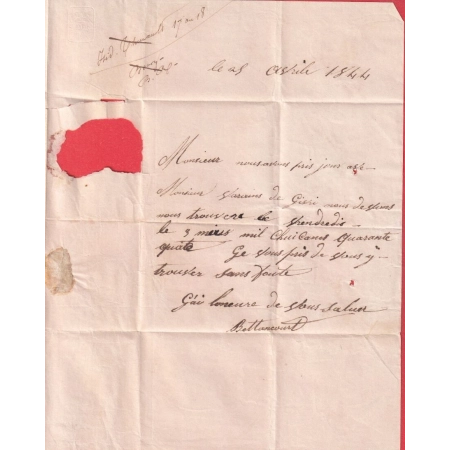 le 25 Avrile 1844
Monsieur nousavons pris jour avec
Monsieur de Gisri nous devons
nous trouvere le Vendredis
le 3 mais mil Chuicenes quarante
quatre Ge vous pris de vous y
trouver sans foute
G'ai loneure de vous saluer
Bettancourt